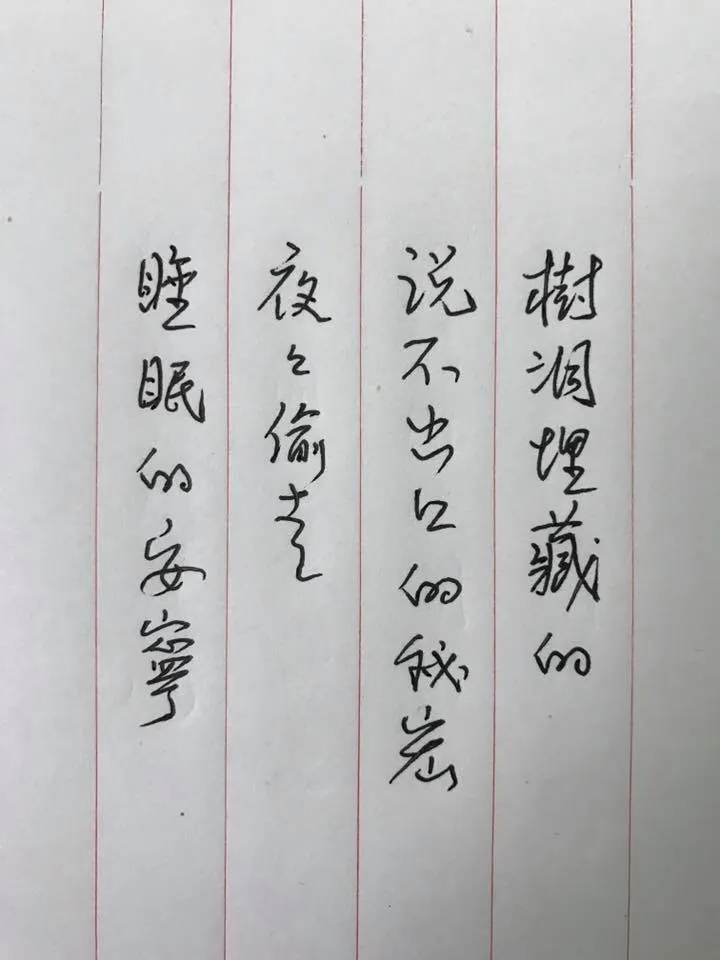 樹洞埋藏的
说不出口的秘密
夜々偷走
睡眠的安寧